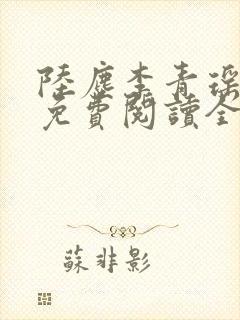 陸塵李青瑤
免費閱讀全
蘇非影